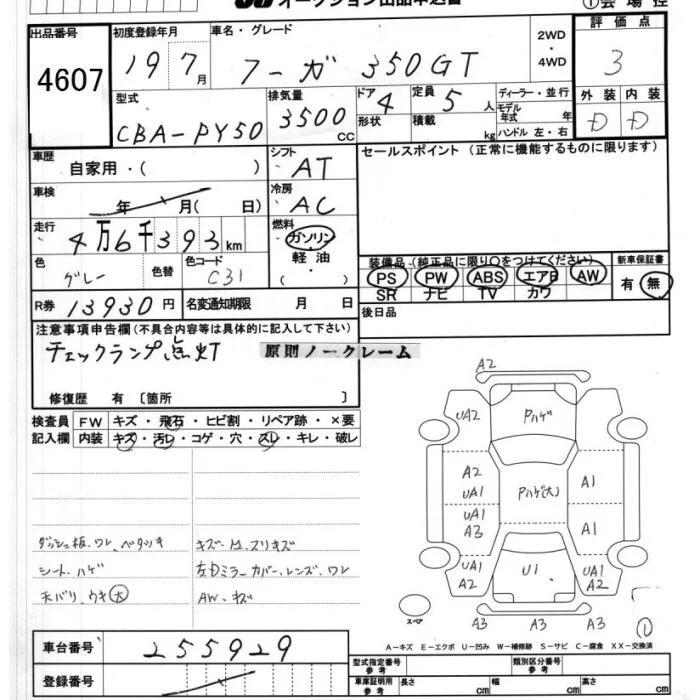 オークション出品申込書 ①会場控
出品番号 4607
初度登録年月 19 7月
車名・グレード フーガ 350GT
2WD・4WD
評価点 3
型式 CBA-PY50
排気量 3500 CC
ドア 4 形状
定員 5 人 積載 kg
ディーラー・並行
モデル年式 年
ハンドル 左・右
外装 D 内装 D
車歴 自家用・( )
シフト AT
セールスポイント (正常に機能するものに限ります)
車検 年 月( 日)
冷房 AC
走行 4万6千393km
燃料 ガソリン 軽油・( )
色 グレー 色替
色コード C31
装備品 (純正品に限り○をつけてください)
PS PW ABS エアB AW
SR ナビ TV カワ
新車保証書 有・無
R券 13930円
名変通知期限 月 日
後日品
注意事項申告欄(不具合内容等は具体的に記入して下さい)
チェックランプ点灯
原則ノークレーム
修復歴 有〔箇所 〕
検査員記入欄
FW キズ・飛石・ヒビ割・リペア跡・×要
内装 キズ・汚レ・コゲ・穴・スレ・キレ・破レ
ダッシュ板、ワレ、ベタツキ
キズ
スリキズ
シート、ハゲ
左右ミラーカバー、レンズ、ワレ
天バリ、ウキ(大)
AW、キズ
A2
UA2 Pハゲ
A2
UA1 Pハゲ(大) A1
UA1
A3 A1
UA1
A2 U1 UA2
A2
スペア
A3 A3 A3
①
A-キズ E-エクボ U-凹み W-補修跡 S-サビ C-腐食 XX-交換済
車台番号 255929
登録番号
型式指定番号 参考
類別区分番号 参考
車庫証明用 参考
長さ cm 幅 cm 高さ cm